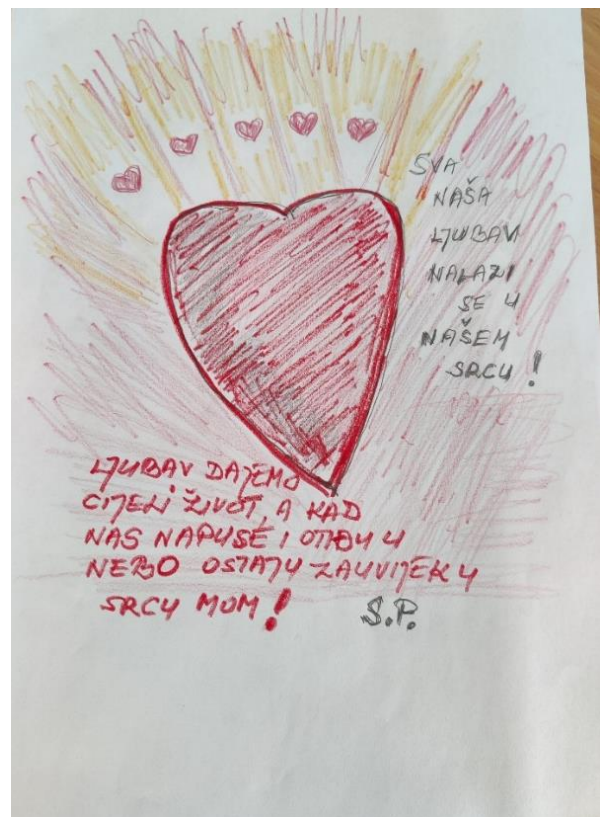 SVA
NAŠA
LJUBAV
NALAZI
SE U
NAŠEM
SRCU!
LJUBAV DAJEMO
CIJELI ŽIVOT, A KAD
NAS NAPUSE I OTIĐU U
NEBO OSTAJU ZAUVIJEK U
SRCU MOM!
S.P.